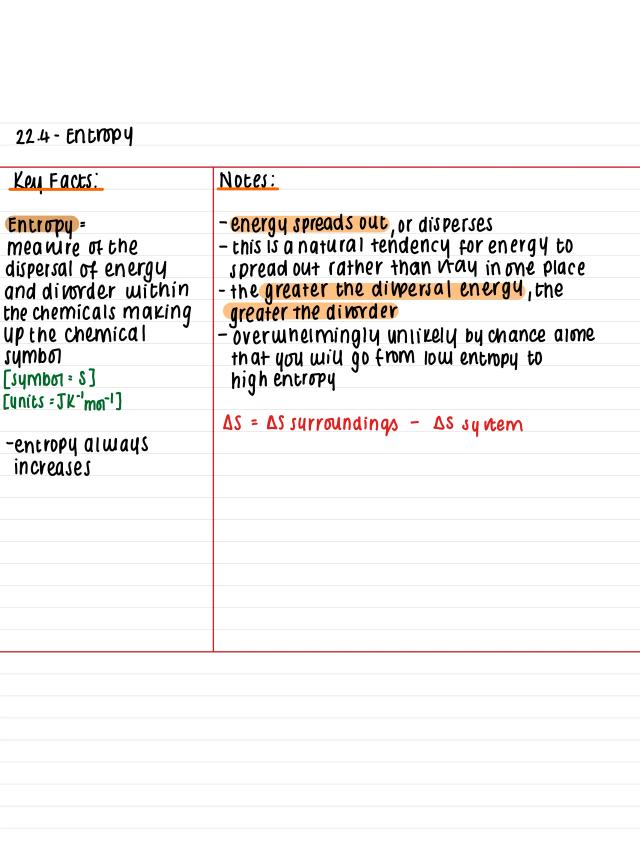 22.4 - Entropy
Key Facts:
Entropy =
measure of the
dispersal of energy
and disorder within
the chemicals making
up the chemical
symbol
[symbol = S]
[units = JK⁻¹mol⁻¹]
-entropy always
increases
Notes:
- energy spreads out, or disperses
- this is a natural tendency for energy to
spread out rather than stay in one place
- the greater the dispersal energy, the
greater the disorder
- overwhelmingly unlikely by chance alone
that you will go from low entropy to
high entropy
ΔS = ΔS surroundings - ΔS system